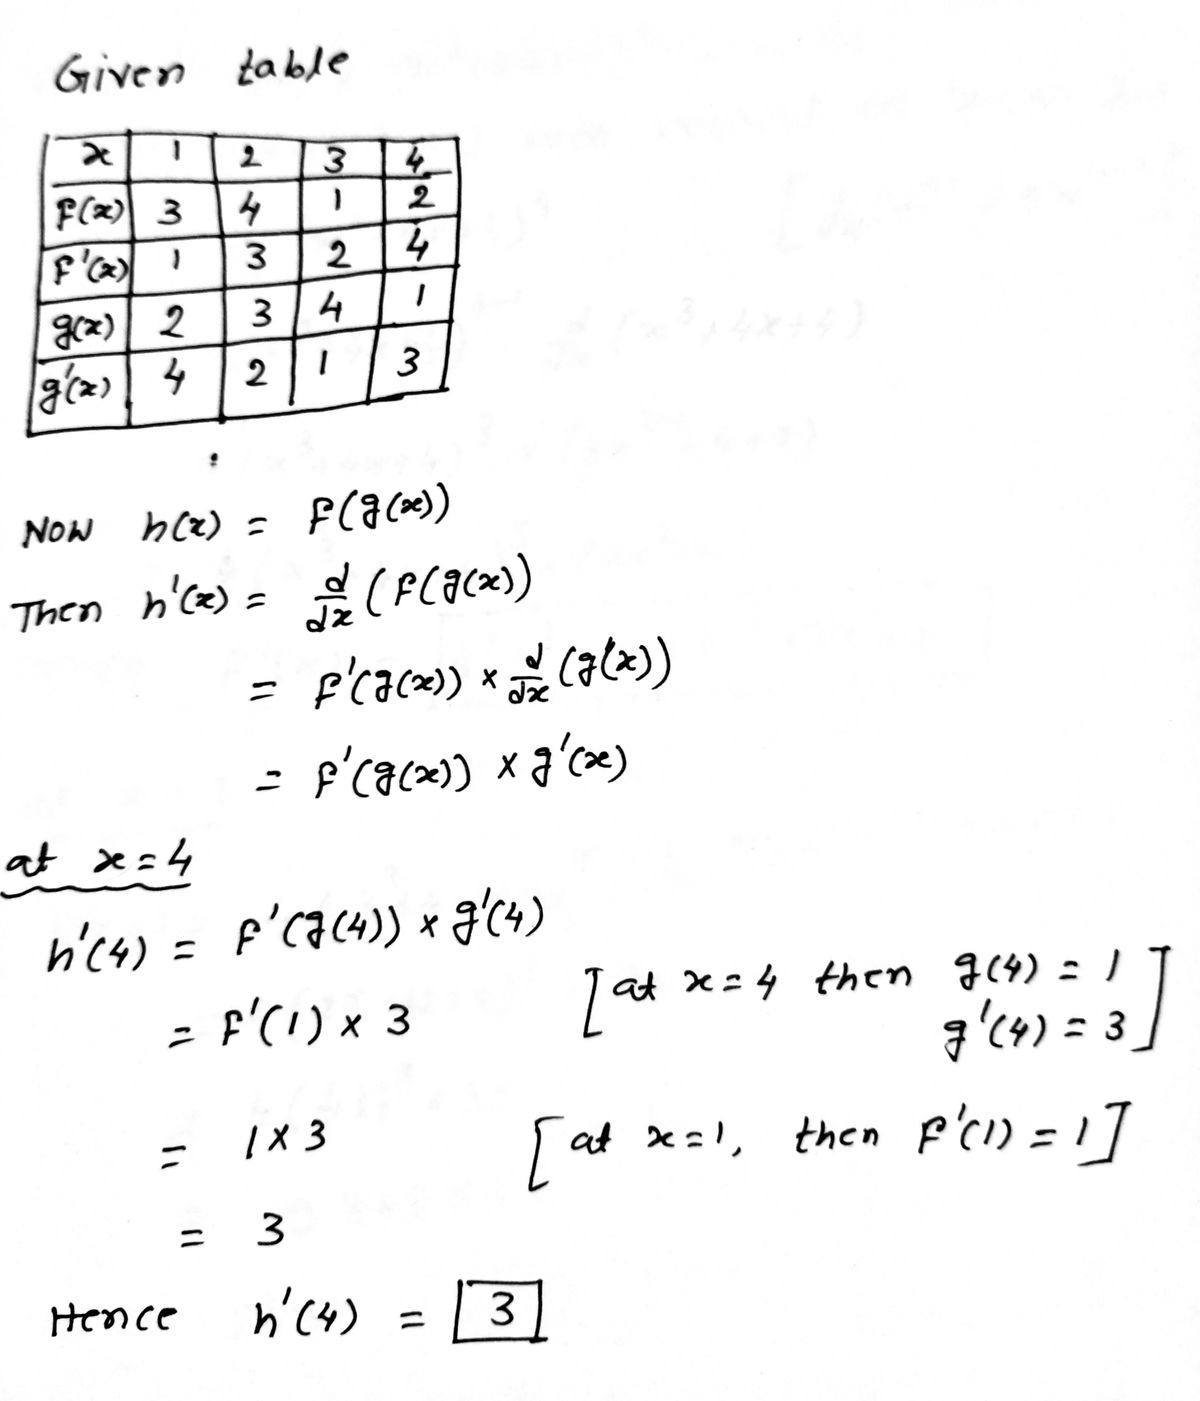 Given table
x 1 2 3 4
F(x) 3 4 1 2
F'(x) 1 3 2 4
g(x) 2 3 4 1
g'(x) 4 2 1 3
Now h(x) = F(g(x))
Then h'(x) = d/dx (F(g(x))
= F'(g(x)) × d/dx (g(x))
= F'(g(x)) × g'(x)
at x = 4
h'(4) = F'(g(4)) × g'(4)
= F'(1) × 3 [at x = 4 then g(4) = 1
g'(4) = 3]
= 1 × 3 [at x = 1, then F'(1) = 1]
= 3
Hence h'(4) = 3